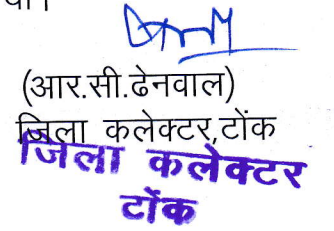 था।
(आर.सी.ढेनवाल)
जिला कलेक्टर,टोंक
जिला कलेक्टर
टोंक